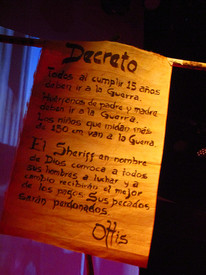 Decreto
Todos al cumplir 15 años
deben ir a la Guerra.
Huerfanos de padre y madre
deben ir a la Guerra.
Los niños que midan más
de 150 cm van a la Guerra.
El Sheriff en nombre
de Dios convoca a todos
sus hombres a luchar y a
cambio recibirán el mejor
de los pagos. Sus pecados
serán perdonados
Ottis